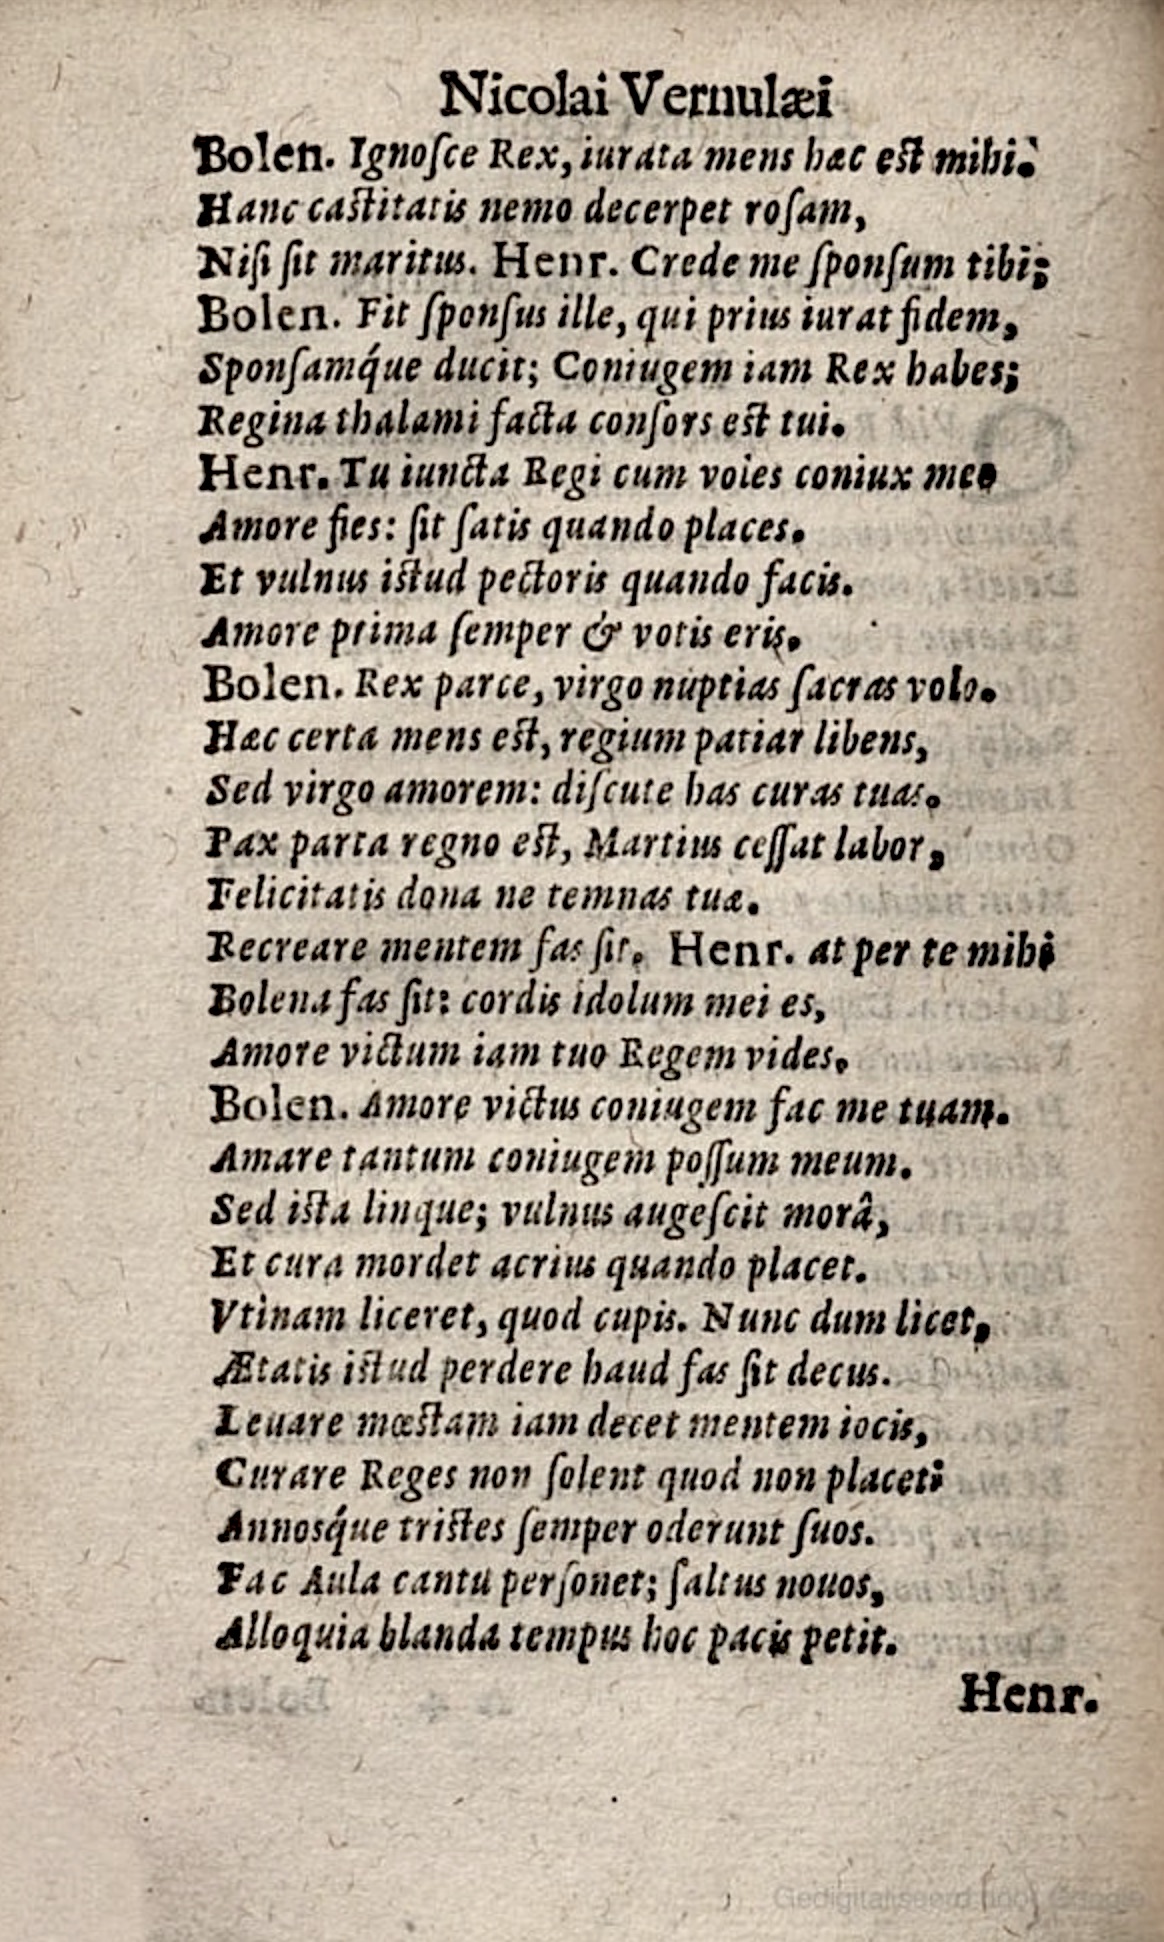 Nicolai Vernulæi
Bolen. Ignoſce Rex, iurata mens hæc eſt mihi.
Hanc caſtitatis nemo decerpet roſam,
Niſi ſit maritus. Henr. Crede me ſponſum tibi;
Bolen. Fit ſponſus ille, qui prius iurat fidem,
Sponſamq́ue ducit; Coniugem iam Rex habes;
Regina thalami facta conſors eſt tui.
Henr. Tu iuncta Regi cum voles coniux meo
Amore fies: ſit ſatis quando places.
Et vulnus iſtud pectoris quando facis.
Amore prima ſemper & votis eris.
Bolen. Rex parce, virgo nuptias ſacras volo.
Hæc certa mens eſt, regium patiar libens,
Sed virgo amorem: diſcute has curas tuas.
Pax parta regno eſt, Martius ceſſat labor,
Felicitatis dona ne temnas tuæ.
Recreare mentem fas ſit. Henr. at per te mihi
Bolena fas ſit: cordis idolum mei es,
Amore victum iam tuo Regem vides.
Bolen. Amore victus coniugem fac me tuam.
Amare tantum coniugem poſſum meum.
Sed iſta linque; vulnus augeſcit morâ,
Et cura mordet acrius quando placet.
Vtinam liceret, quod cupis. Nunc dum licet,
Ætatis iſtud perdere haud fas ſit decus.
Leuare mœſtam iam decet mentem iocis,
Curare Reges non ſolent quod non placet:
Annosq́ue triſtes ſemper oderunt ſuos.
Fac Aula cantu perſonet; ſaltus nouos,
Alloquia blanda tempus hoc pacis petit.
Henr.
Gedigitaliseerd door Google